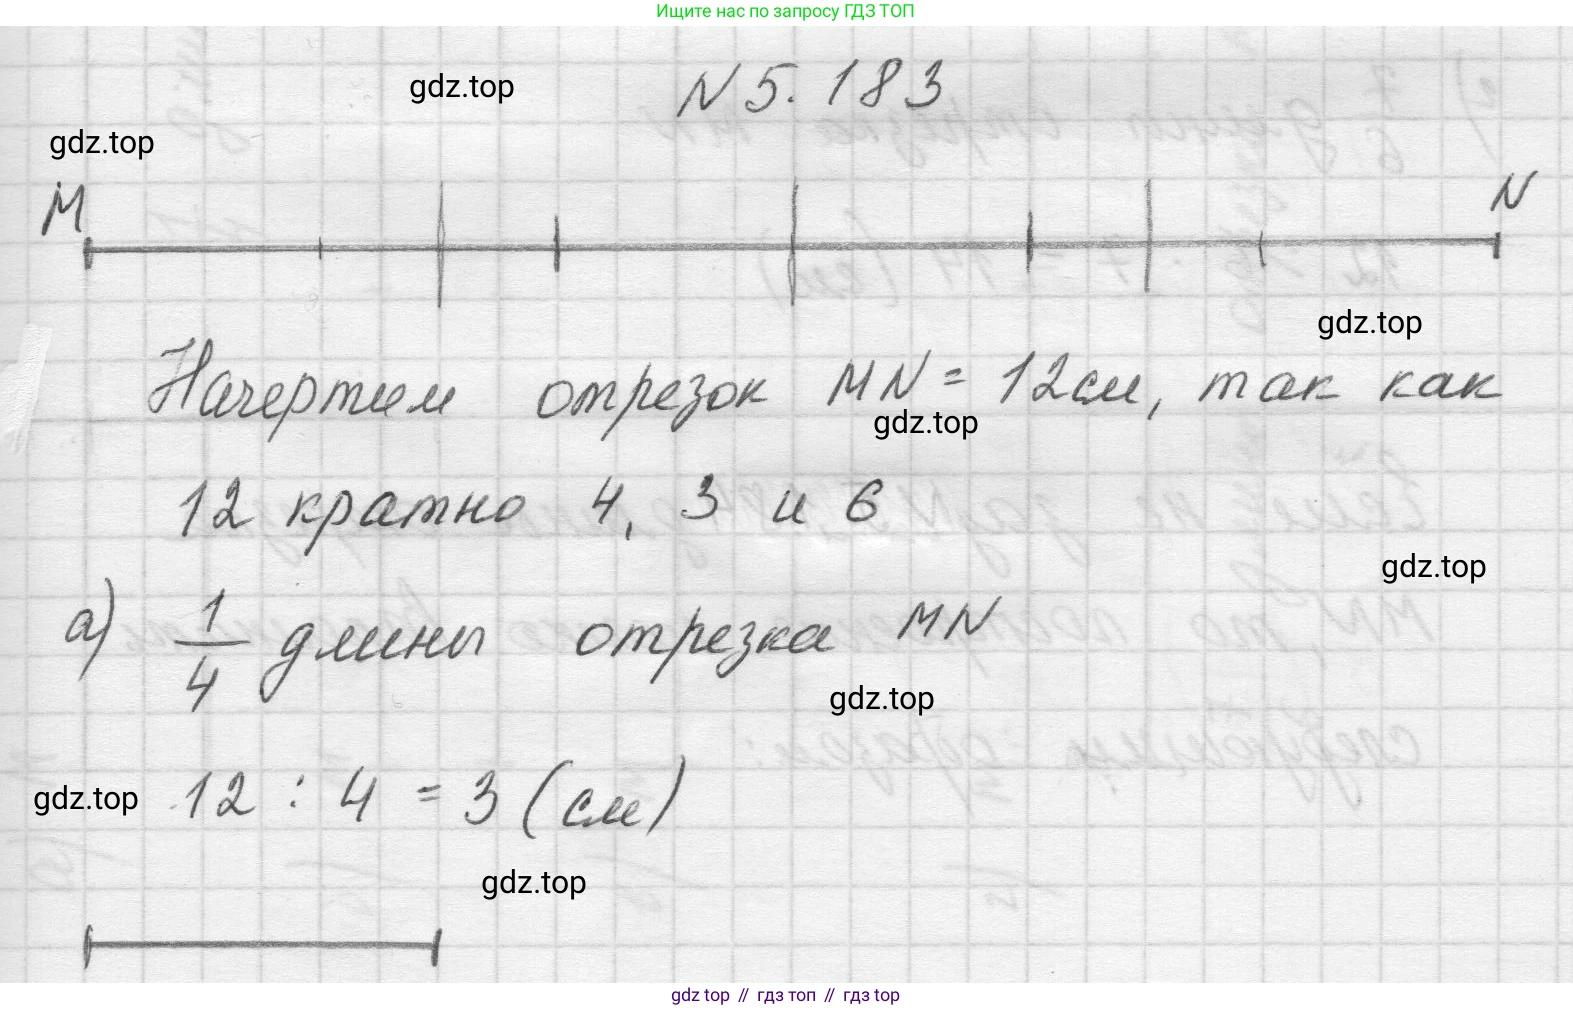 Ищите нас по запросу ГДЗ ТОП
N 5.183
gdz.top
gdz.top
M
N
gdz.top
Начертим отрезок MN = 12 см, так как
gdz.top
12 кратно 4, 3 и 6
gdz.top
а) 1/4 длины отрезка MN
gdz.top
12 : 4 = 3 (см)
gdz.top
gdz.top
gdz top // гдз топ // гдз top